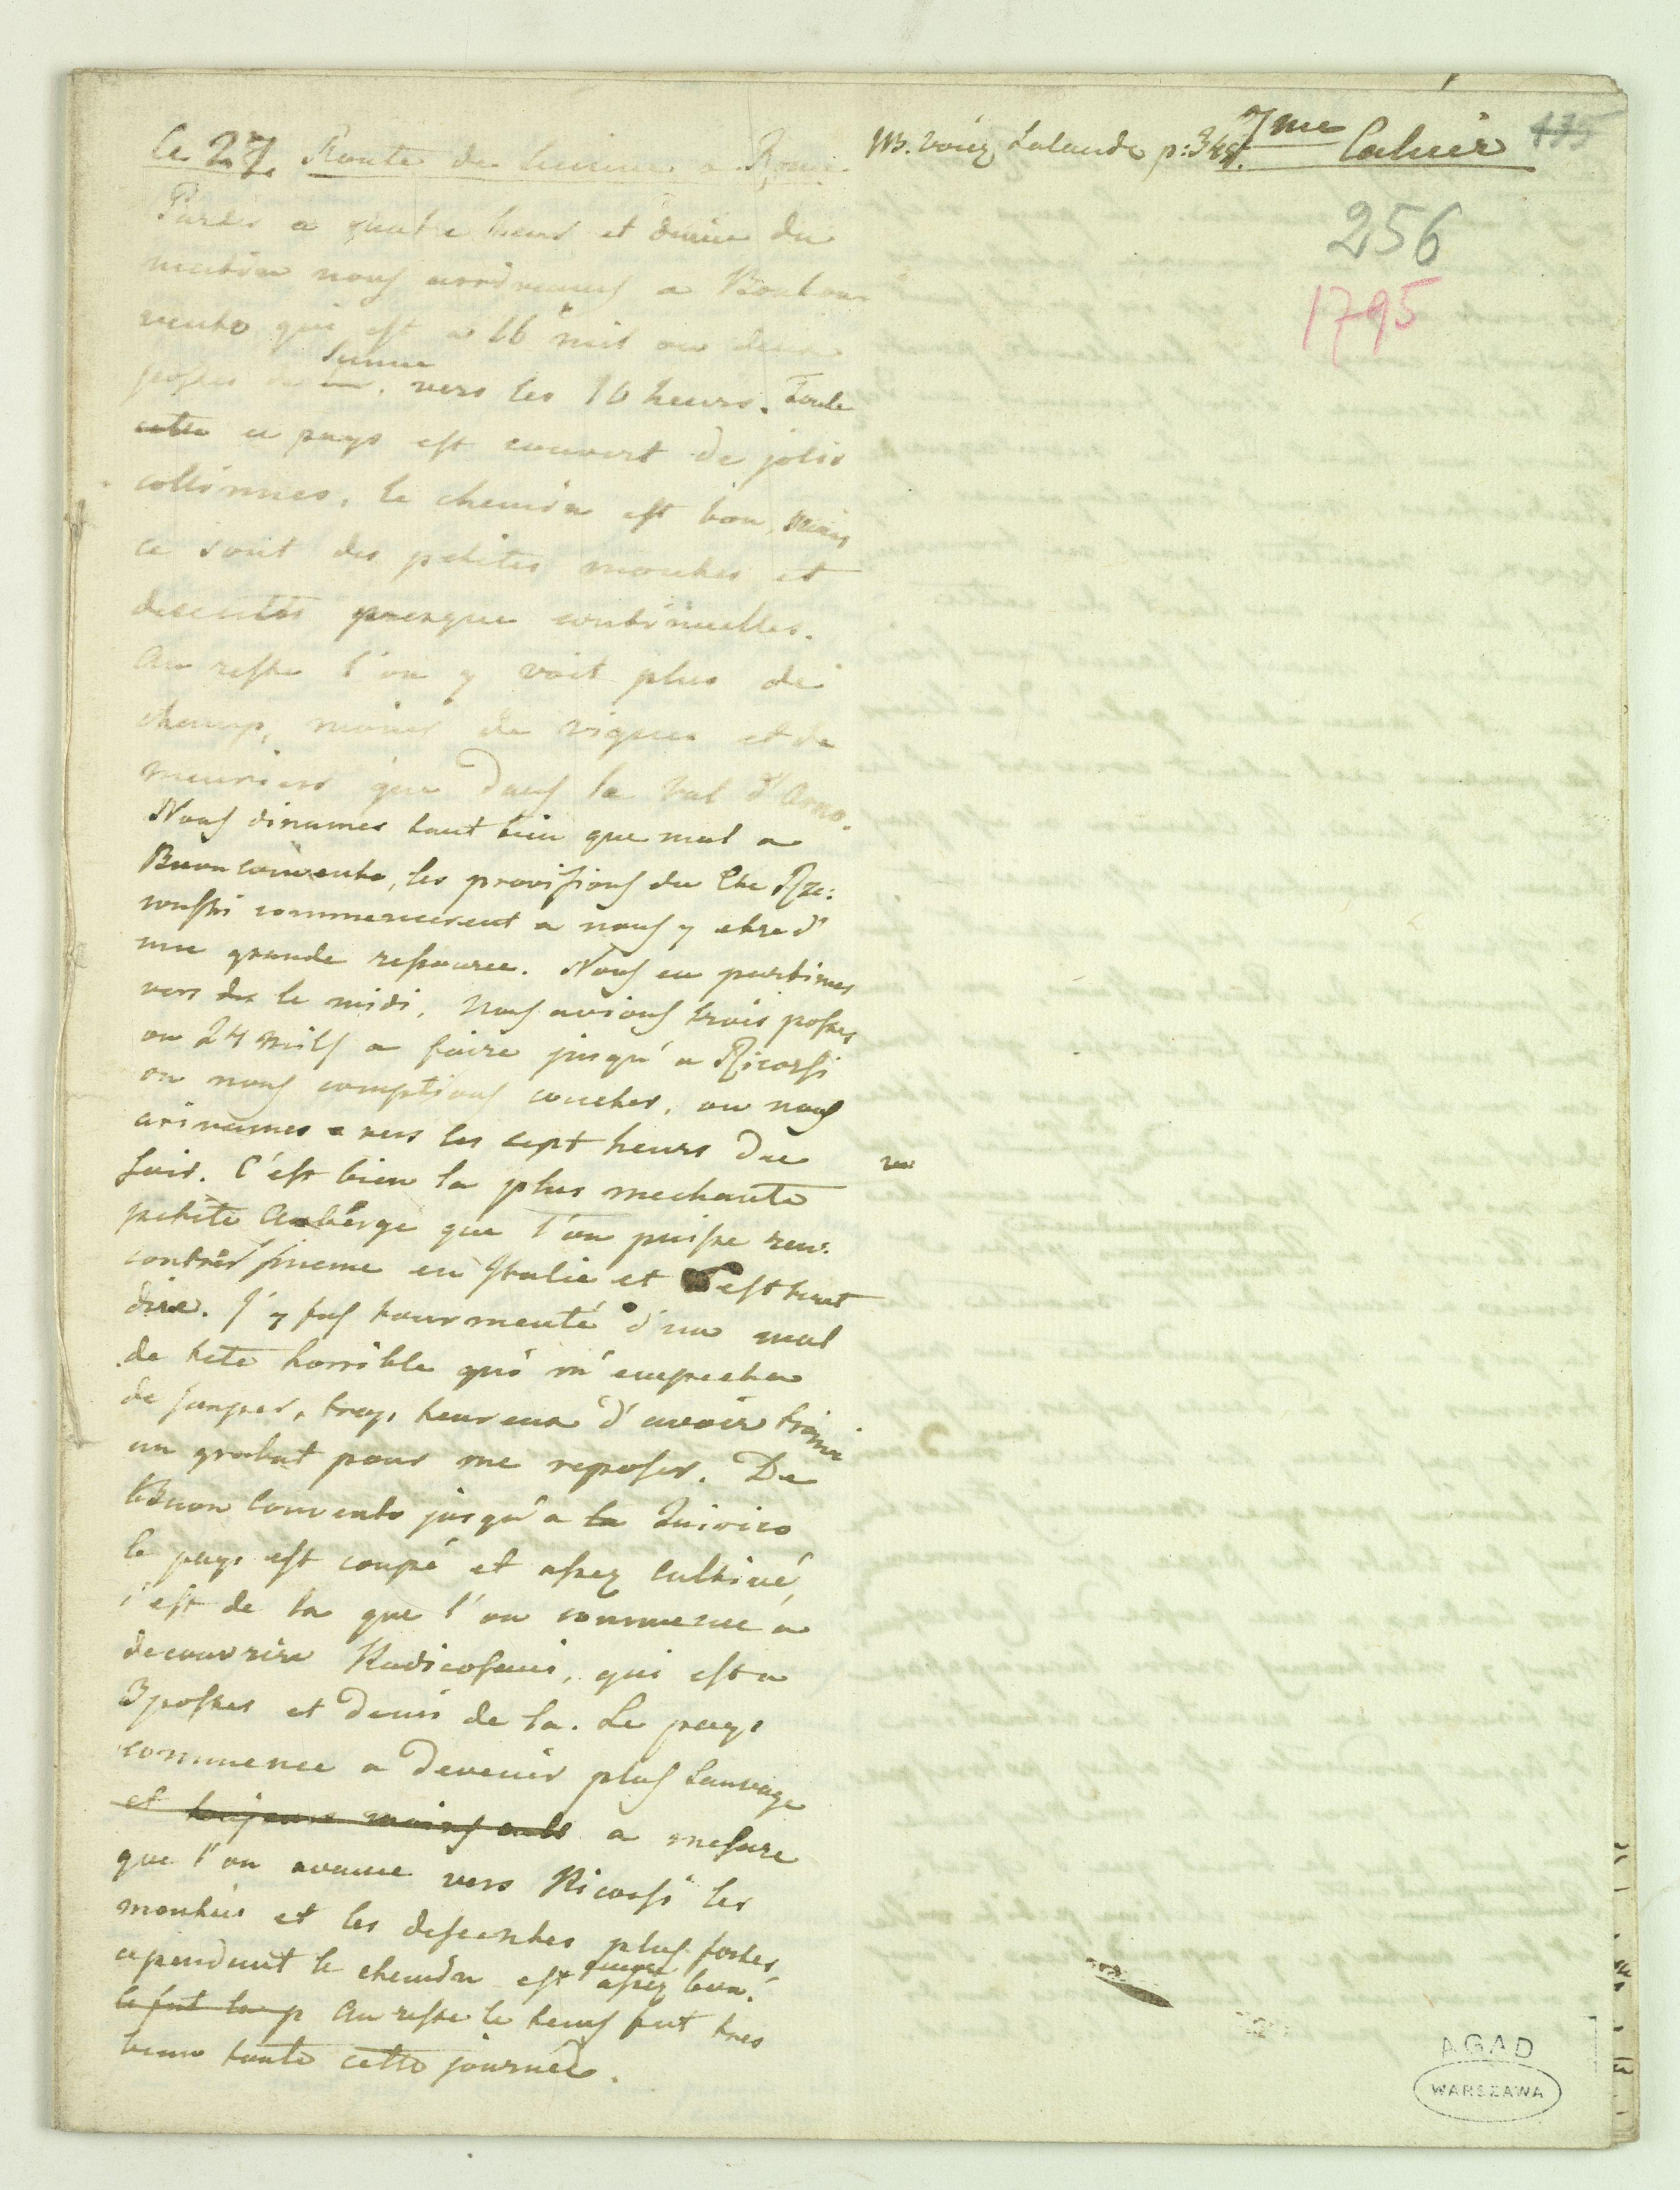 Ce 27. Route de Sienne a Rome.
NB. voiéz Lalande p: 345.
7me Cahier
256
1795
Partis a quatre heurs et demie du
matin nous arrivames a Bonkon
vento qui est a 16 mil ou deux
postes de Sienne, vers les 10 heurs. Toute
cette ce pays est couvert de jolis
collinnes, le chemin est bon, mais
ce sont des petites montes et
descentes presque continuelles.
Au reste l'on y voit plus de
champ, moins de vignes et de
meuriers que dans la Val d'Arno.
Nous dinames tant bien que mal a
Buonconvento, les provisions du Cte Rze:
wuski commencerent a nous y etre d'
une grande ressource. Nous en partimes
vers le midi. Nous avions trois postes
ou 24 mils a faire jusqu'a Ricorsi
ou nous comptions coucher, ou nous
arivames a vers les sept heurs du
soir. C'est bien la plus mechante
petite Auberge que l'on puisse ren:
contrer meme en Italie et c'est tout
dire. J'y fus tourmenté d'un mal
de tete horrible qui m'empecha
de souper, trop heureux d'avoir trouvé
un grabat pour me reposer. De
Buon Convento jusqu'a la Quirico
le pays est coupé et assez cultivé,
c'est de la que l'on commence a
decouvrire Radicofani, qui est a
3 postes et demi de la. Le pays
commence a devenir plus sauvage
et toujours moins cult a mesure
que l'on avance vers Ricorsi les
montées et les descentes plus fortes,
cependant le chemin est encore assez bon.
Au reste le tems fut tres
beau toute cette journée.
AGAD
WARSZAWA